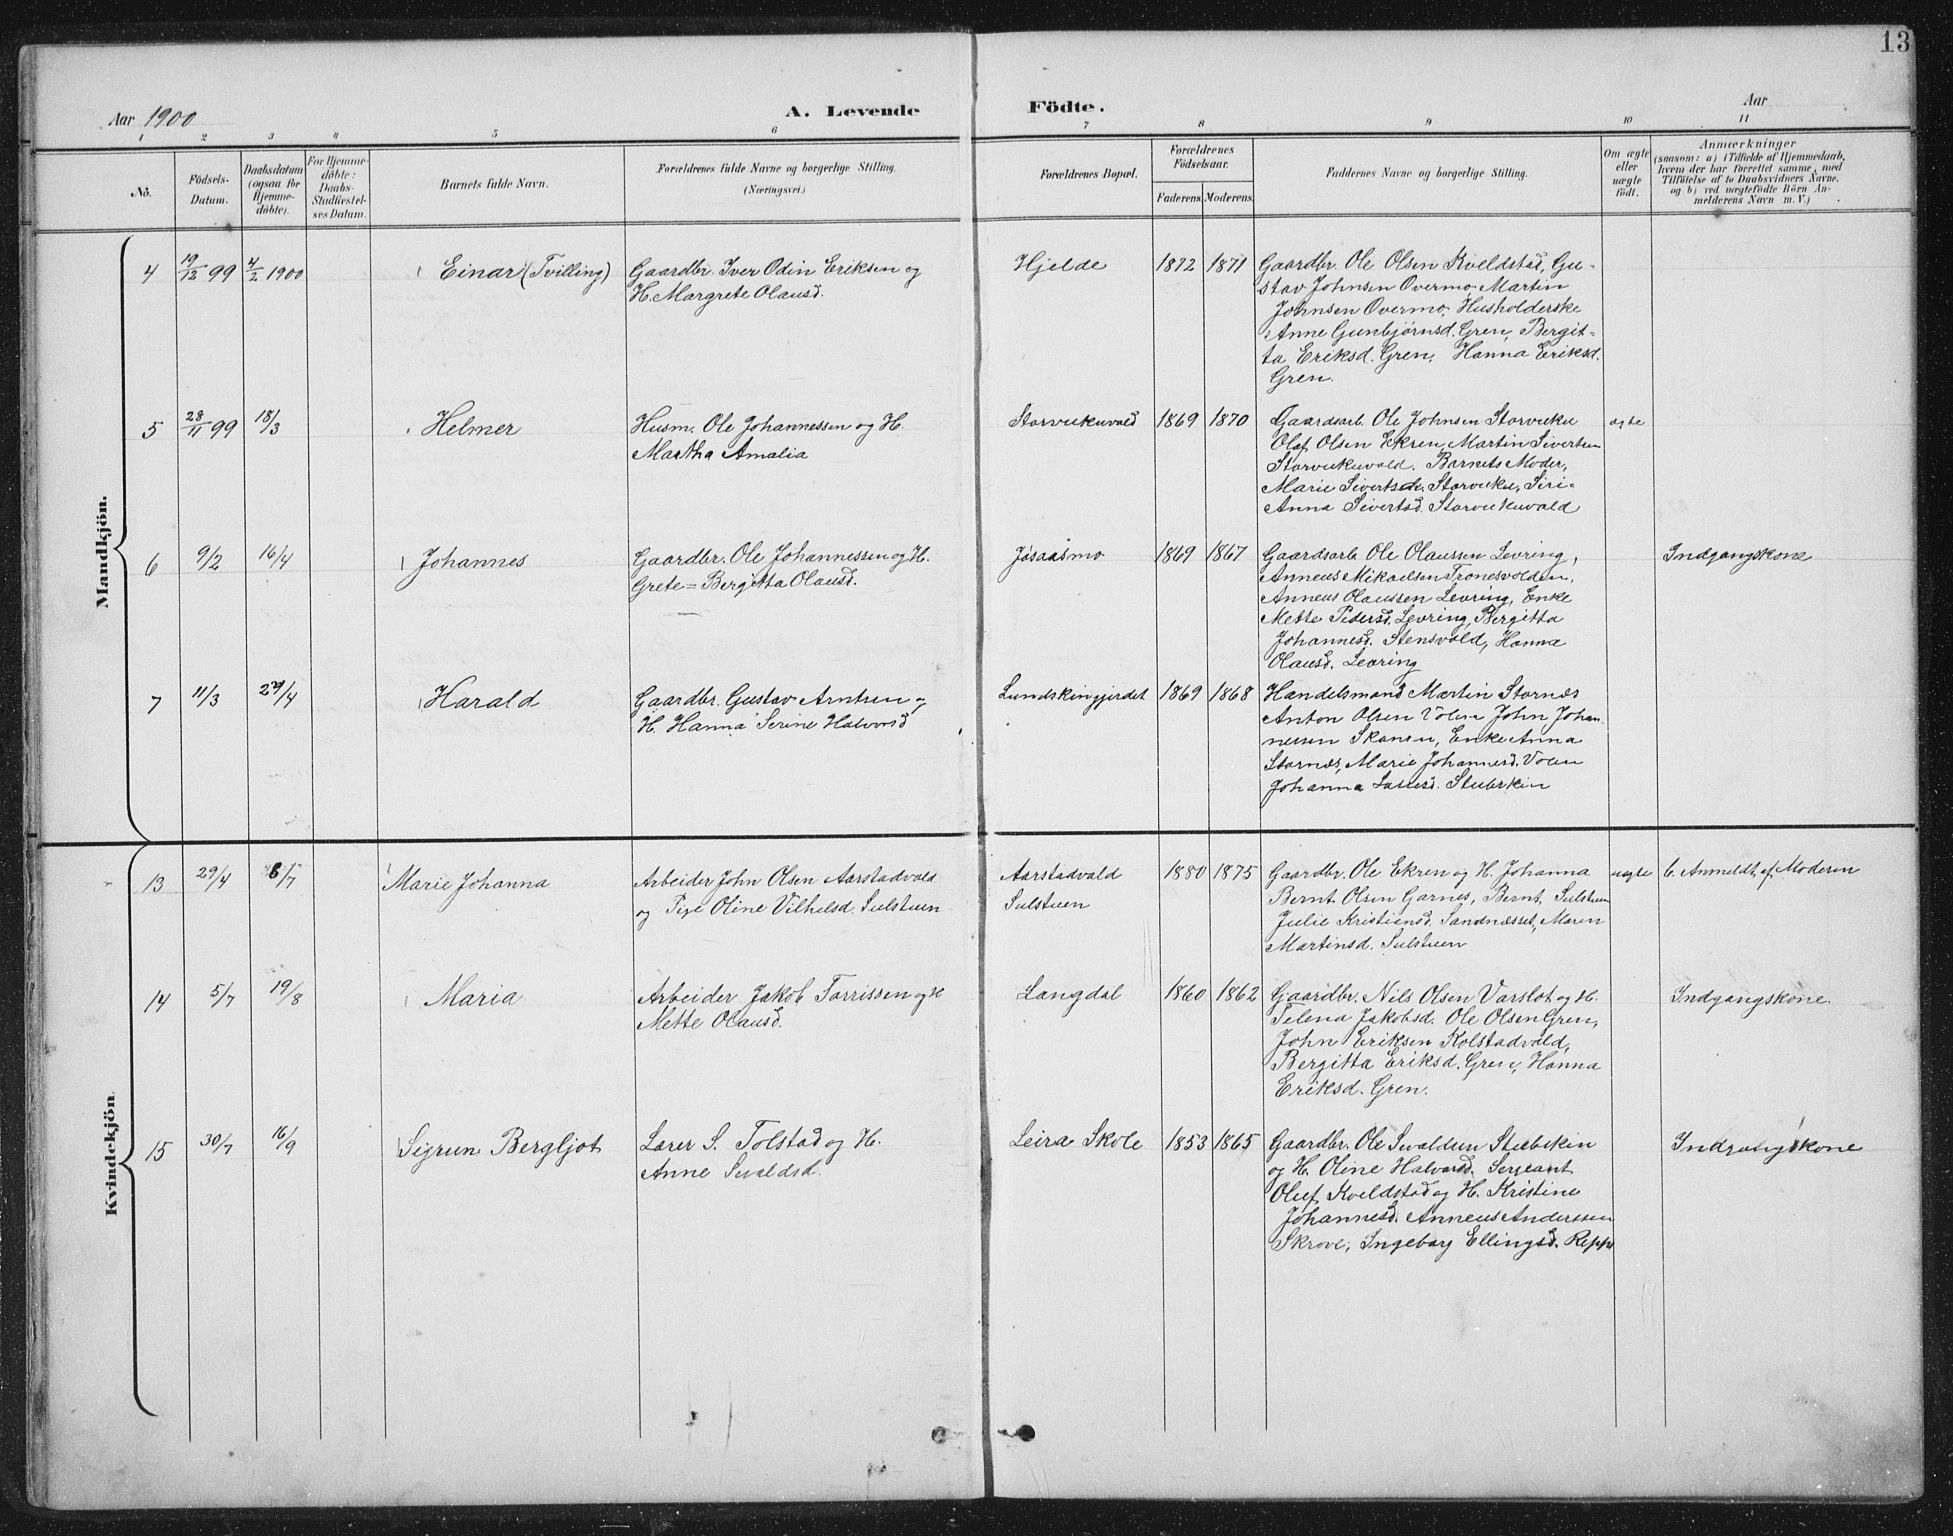 13
Aar 1900
A. Levende Födte.
Aar
1 2 3 4 5 6 7 8 9 10 11
No.
Födsels-
Datum.
Daabsdatum
(ogsaa for
Hjemme-
döbte).
For Hjemme-
döbte:
Daabs-
Stadfæstel-
ses Datum.
Barnets fulde Navn.
Forældrenes fulde Navne og borgerlige Stilling.
(Næringsvei.)
Forældrenes Bopæl.
Forældrenes
Födselsaar.
Faderens. Moderens.
Faddernes Navne og borgerlige Stilling.
Om ægte
eller
uægte
födt.
Anmærkninger
(saasom: a) i Tilfælde af Hjemmedaab,
hvem der har forrettet samme, med
Tilföielse af to Daabsvidners Navne.
og b) ved uægtefödte Börn An-
melderens Navn m. V.)
Mandkjön.
4 19/12 99 4/2 1900 Einar (Tvilling)
Gaardbr. Iver Odin Eriksen og
H. Margrete Olausd.
Hjelde 1872 1871
Gaardbr. Ole Olsen Kveldstad, Gu-
stav Johnsen Overmo. Martin
Johnsen Overmo, Husholderske
Anne Gunbjørnsd. Gren, Bergit-
ta Eriksd. Gren, Hanna Eriksd.
Gren.
5 28/11 99 18/3 Helmer
Husm. Ole Johannessen og H.
Martha Amalia
Storvukuvald 1869 1870
Gaardsarb. Ole Johnsen Storvuku
Olaf Olsen Ekren, Martin Sivertsen
Storvukuvald. Barnets Moder,
Marie Sivertsd. Storvuku, Siri-
Anna Sivertsd. Storvukuvald
ægte
6 9/2 16/4 Johannes
Gaardbr. Ole Johannessen og H.
Grete = Bergitta Olausd.
Jøsaasmo 1869 1867
Gaardsarb. Ole Olaussen Levring,
Anneus Mikaelsen Tronesvolden,
Anneus Olaussen Levring, Enke
Mette Pedersd. Levring, Bergitta
Johannesd. Stensvald, Hanna
Olausd. Levring
Indgangskone
7 11/3 29/4 Harald
Gaardbr. Gustav Arntsen og
H. Hanna Serine Halvorsd
Lundskingjerdet 1869 1868
Handelsmand Martin Stornæs
Anton Olsen Volen John Johan-
nessen Skansen, Enke Anna
Stornæs, Marie Johannesd. Volen
Johanna Lassesd. Stubskin
Kvindekjön.
13 29/4 8/7 Marie Johanna
Arbeider John Olsen Aarstadvald
og Pige Oline Vilhelsd. Sulstuen
Aarstadvald
Sulstuen
1880 1875
Gaardbr. Ole Ekren og H. Johanna
Bernt Olsen Garnes, Bernt Sulstuen
Julie Kristiansd. Sandnæsset, Maren
Martinsd. Sulstuen
uægte
b. Anmeldt af Moderen
14 5/7 19/8 Maria
Arbeider Jakob Torrissen og H
Mette Olausd.
Langdal 1860 1862
Gaardbr. Nils Olsen Varslot og H.
Telena Jakobsd. Ole Olsen Gren,
John Eriksen Kolstadvald,
Bergitta Eriksd. Gren, Hanna
Eriksd. Gren.
Indgangskone.
15 30/7 16/9 Sigrun Bergljot
Lærer S. Tolstad og H.
Anne Sivaldsd.
Leira Skole 1853 1865
Gaardbr. Ole Sivaldsen Stubskin
og H. Oline Halvorsd. Sergeant
Oluf Kveldstad og H. Kristine
Johannesd. Anneus Anderssen
Skrove, Ingeborg Ellingsd. Reppe
Indgangskone